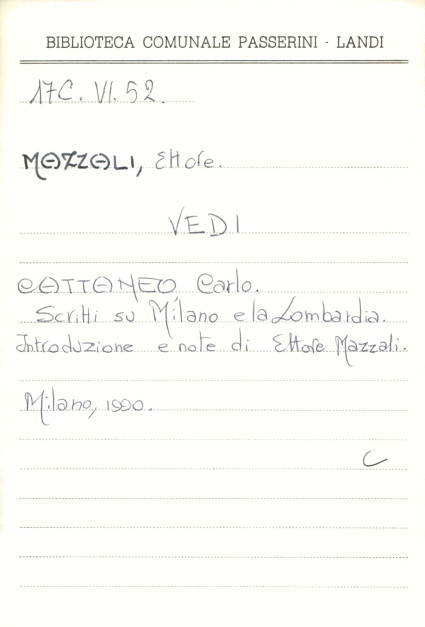 BIBLIOTECA COMUNALE PASSERINI - LANDI
17C. VI. 52.
MAZZALI, Ettore.
VEDI
CATTANEO Carlo.
Scritti su Milano e la Lombardia.
Introduzione e note di Ettore Mazzali.
Milano, 1990.
C